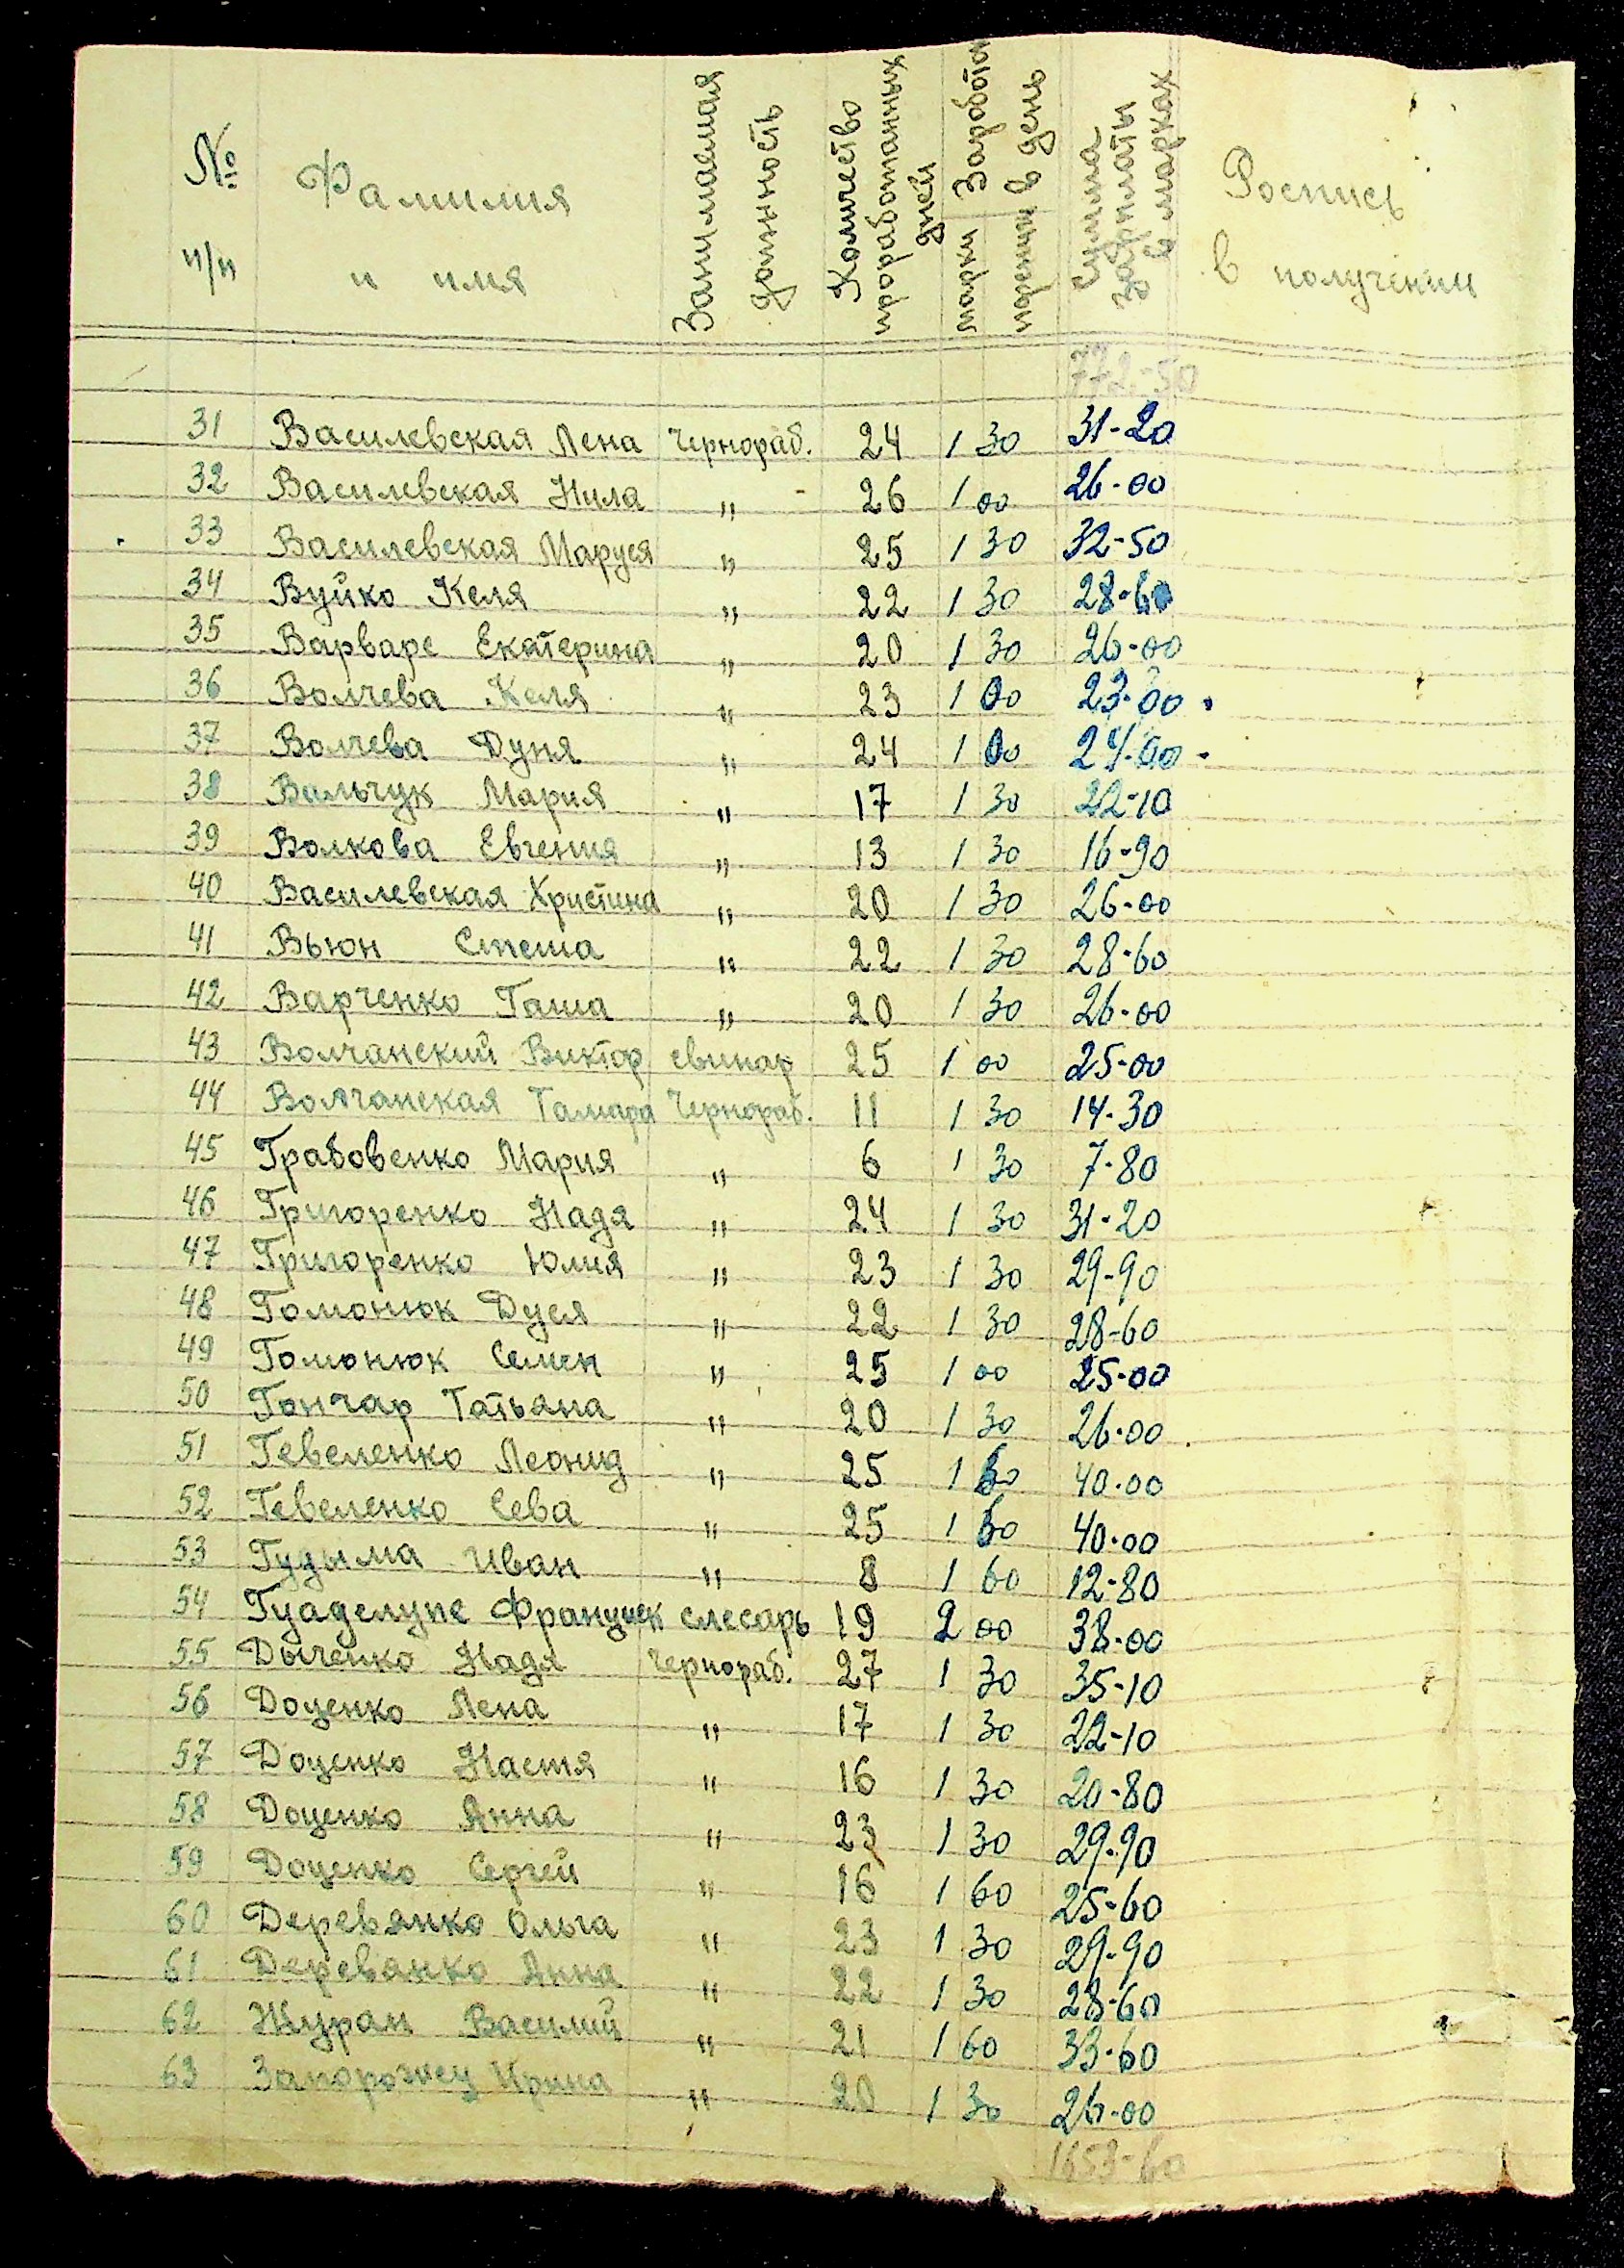 № п/п Фамилия и имя Занимаемая должность Количество проработанных дней Заработок в день марки пфенниг Сумма зарплаты в марках Роспись в получении
772-50
31 Василевская Лена Чернораб. 24 1 30 31-20
32 Василевская Нила " 26 1 00 26-00
33 Василевская Маруся " 25 1 30 32-50
34 Вуйко Келя " 22 1 30 28-60
35 Варваре Екатерина " 20 1 30 26-00
36 Волчева Келя " 23 1 00 23-00
37 Волчева Дуня " 24 1 00 24-00
38 Вальчук Мария " 17 1 30 22-10
39 Волкова Евгения " 13 1 30 16-90
40 Василевская Христина " 20 1 30 26-00
41 Вьюн Стеша " 22 1 30 28-60
42 Варченко Гаша " 20 1 30 26-00
43 Волчанский Виктор свинар 25 1 00 25-00
44 Волчанская Тамара Чернораб. 11 1 30 14-30
45 Грабовенко Мария " 6 1 30 7-80
46 Григоренко Надя " 24 1 30 31-20
47 Григоренко Юлия " 23 1 30 29-90
48 Гомонюк Дуся " 22 1 30 28-60
49 Гомонюк Семен " 25 1 00 25-00
50 Гончар Татьяна " 20 1 30 26-00
51 Гевеленко Леонид " 25 1 60 40-00
52 Гевеленко Сева " 25 1 60 40-00
53 Гудыма Иван " 8 1 60 12-80
54 Гуаделупе Францишек слесарь 19 2 00 38-00
55 Дыченко Надя Чернораб. 27 1 30 35-10
56 Доценко Лена " 17 1 30 22-10
57 Доценко Настя " 16 1 30 20-80
58 Доценко Анна " 23 1 30 29-90
59 Доценко Сергей " 16 1 60 25-60
60 Деревянко Ольга " 23 1 30 29-90
61 Деревянко Анна " 22 1 30 28-60
62 Журан Василий " 21 1 60 33-60
63 Запорожец Ирина " 20 1 30 26-00
1653-60